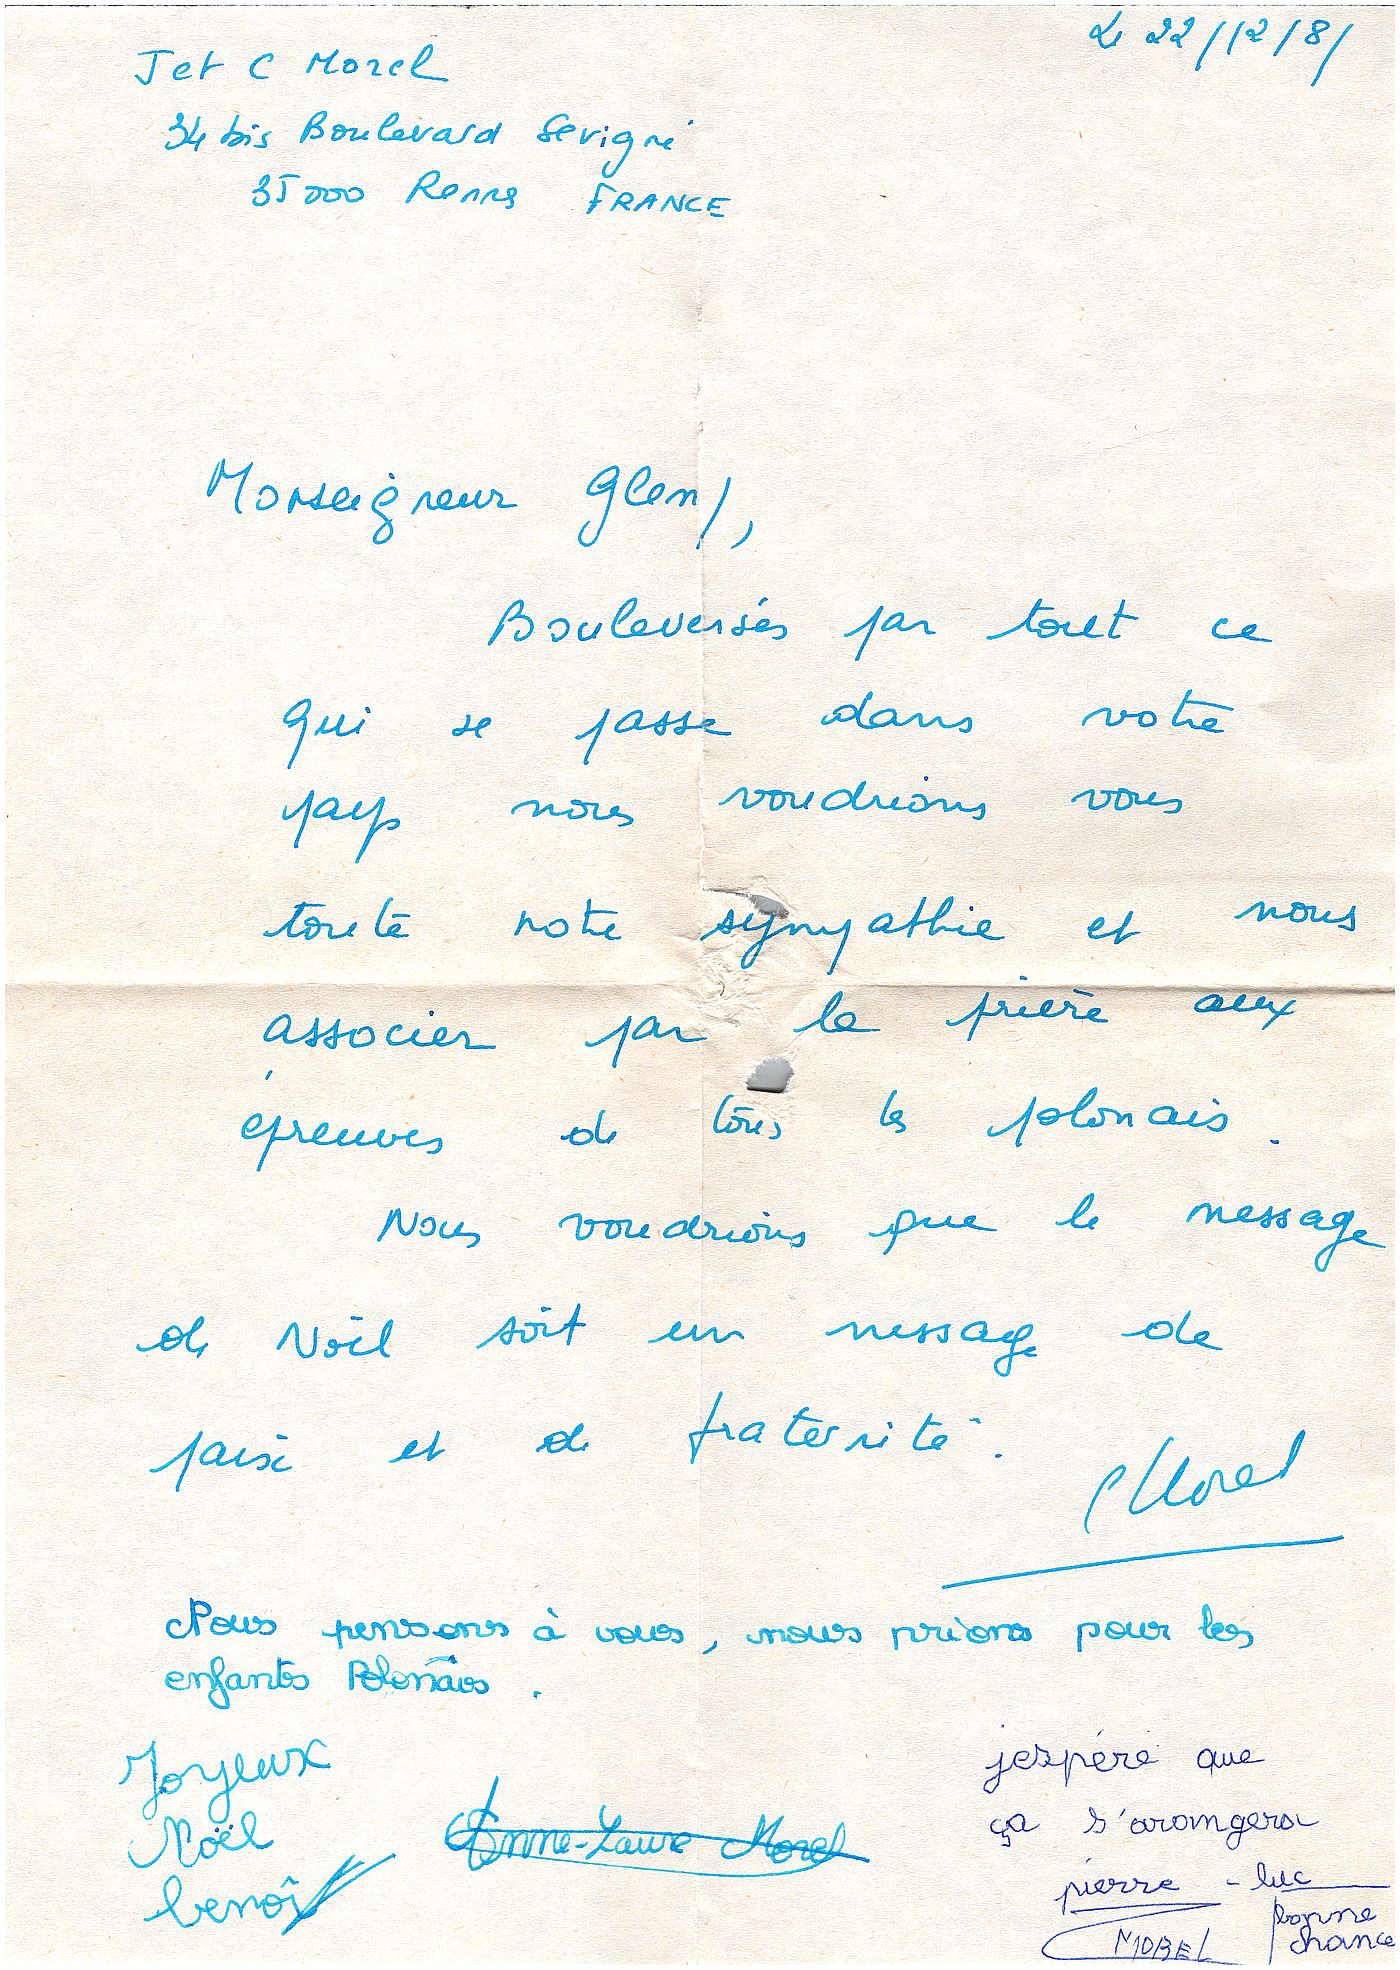 Le 22/12/81
J et C Morel
34 bis Boulevard Sévigné
35000 Rennes FRANCE
Monseigneur Glemp,
Bouleversés par tout ce
qui se passe dans votre
pays nous voudrions vous
toute notre sympathie et nous
associer par la prière aux
épreuves de tous les polonais.
Nous voudrions que le message
de Noël soit un message de
paix et de fraternité.
CMorel
Nous pensons à vous, nous prions pour les
enfants Polonais.
Joyeux
Noël
benoît
Anne-Laure Morel
jespère que
ça s'arangera
pierre-luc
MOREL
bonne
chance